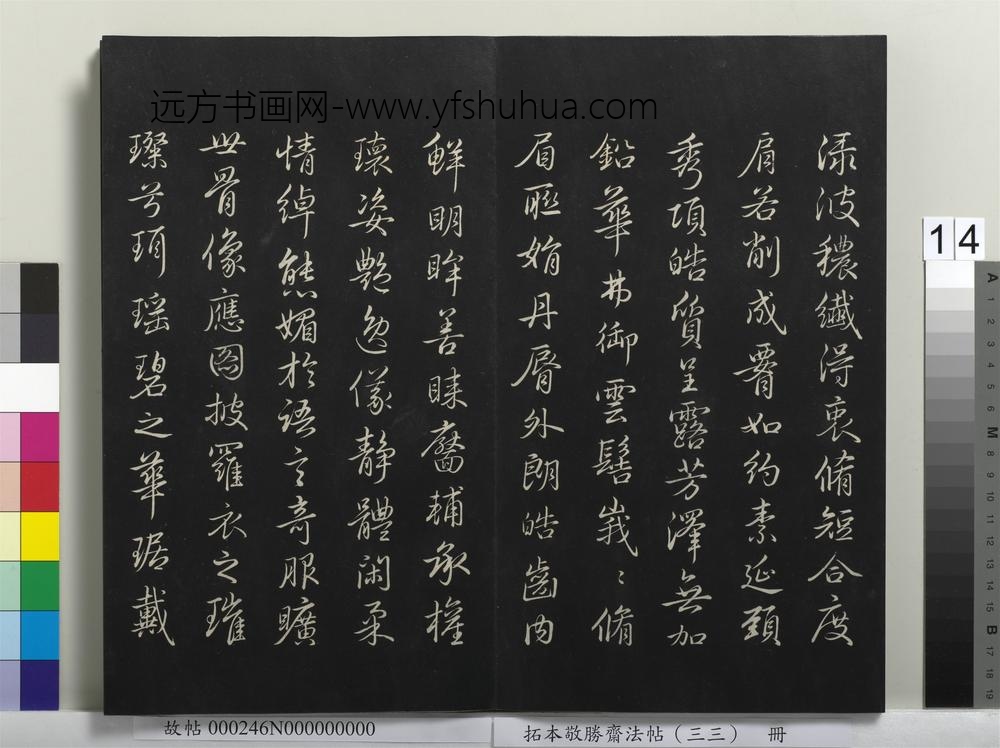 远方书画网-www.yfshuhua.com
渌波穠纖得衷脩短合度
肩若削成𦝫如約素延頸
秀項皓質呈露芳澤無加
鉛華弗御雲髻峩〻脩
眉聯娟丹脣外朗皓齒內
鮮明眸善睞靨輔承權
瓌姿艷逸儀靜體閑柔
情綽態媚於語言奇服曠
世骨像應圖披羅衣之璀
璨兮珥瑶碧之華琚戴
14
A 1 2 3 4 5 6 M 8 9 10 11 12 13 14 15 B 17 18 19
故帖 000246N000000000
拓本敬勝齋法帖（三三） 冊